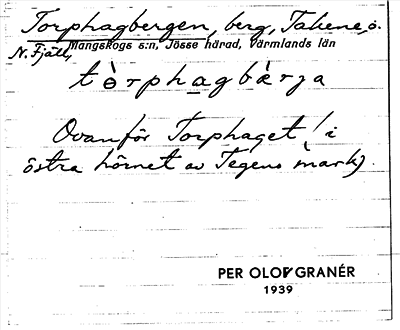 Torphagbergen, berg, Takene, ö.
N. Fjäll, Mangskogs s:n, Jösse härad, Värmlands län
tèrphagbærja
Ovanför Torphaget (i
östra hörnet av Tegens mark).
PER OLOF GRANÉR
1939